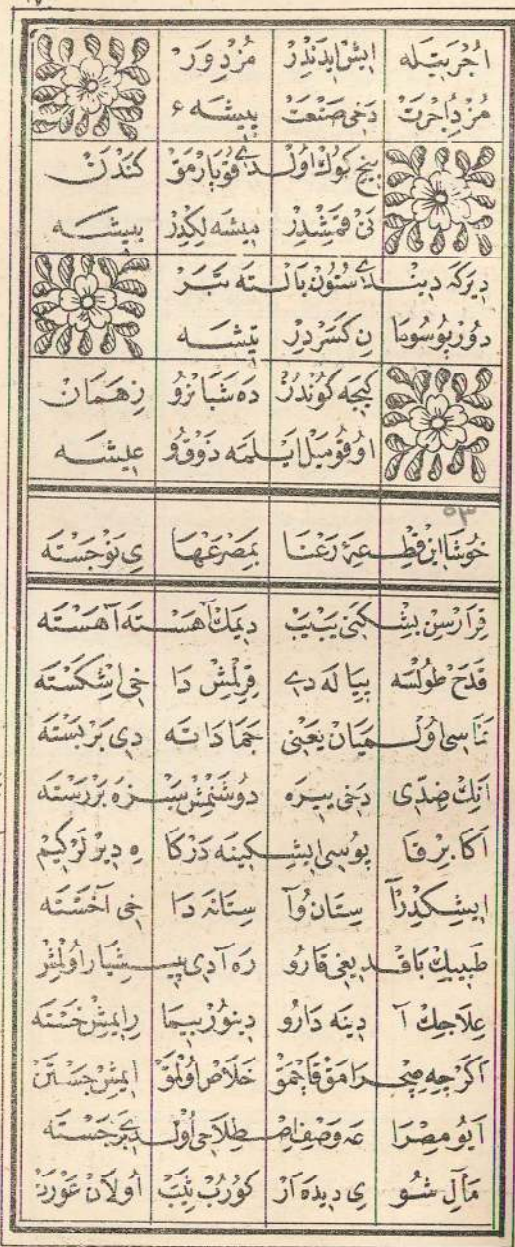 اُجْرَتِیلَه ایشْ ایدَنْدِرْ مُزْدِوَرْ
مُزْدُ اجْرَتْ دَخِی صَنْعَتْ پِیشَه ۶
بِیخِ كوُكْ اُولْدِی قُوپَارْمَقْ كَنْدَنْ
نَیْ قَمِشْدِرْ مِیشَه لِكْدِرْ بِیشَه
دِیرَكَه دِینْدِی سُتُونْ بَالْتَه تَبَرْ
دُورْپُوسُوهَا نِ كَسَرْدِرْ تِیشَه
كِیجَه كُونْدُزْ دَه شَبَانْزُو زِهَمَانْ
اوُقُو مَیْلْ اَیْلَمَه ذَوْقُو عِیشَه
٥٣
خُوشَا این قِطْعَۀ رَعْنَا بَمِصْرَعْهَا یِ نَوْجَسْتَه
قِرَارْسِنْ بِشْكَنِی یَبْیَبْ دِیمَكْ آهَسْتَه آهَسْتَه
قَدَحْ طُولْسَه پِیَا لَه دِی قِرِلْمِشْ دَا خِی اِشْكَسْتَه
تَنَاسِی اُولْ مِیَانْ یَعْنِی جَمَادَاتَه دِی بَرْبَسْتَه
آنِكْ ضِدِّی دَخِی یِیرَه دُوشَنْمِشْ سَبْزَه بَرْرَسْتَه
آكَا بِرْ قَا پُوسِی اِیشِكِینَه دَرْكَا هِ دِیرْلَرْ كِیمْ
اِیشِكْدِرْ آ سِتَانُ وآ سِتَانَه دَا خِی آخَسْتَه
طَبِیبِكْ بَاقْدِ یَعْنِی قَارُو رَه آدِی پِیشِیَارْ اُولْمِشْ
عِلَاجِكْ آ دِینَه دَارُو دِینُورْ بِیمَا رِایمِشْ خَسْتَه
اَكَرْچِه صِچْرَامَقْ قَاچْمَقْ خَلَاصْ اُولْمَقْ اِیمِشْ جَسْتَنْ
اَیُو مِصْرَا عَه وَصْفِ اِصْطِلَاحِی اُولْدِی بَرْجَسْتَه
مَآلِ شُو یِ دِیدَه اَرْ كُورُبْ ثَیِّبْ اُولَانْ عَوْرَتْ